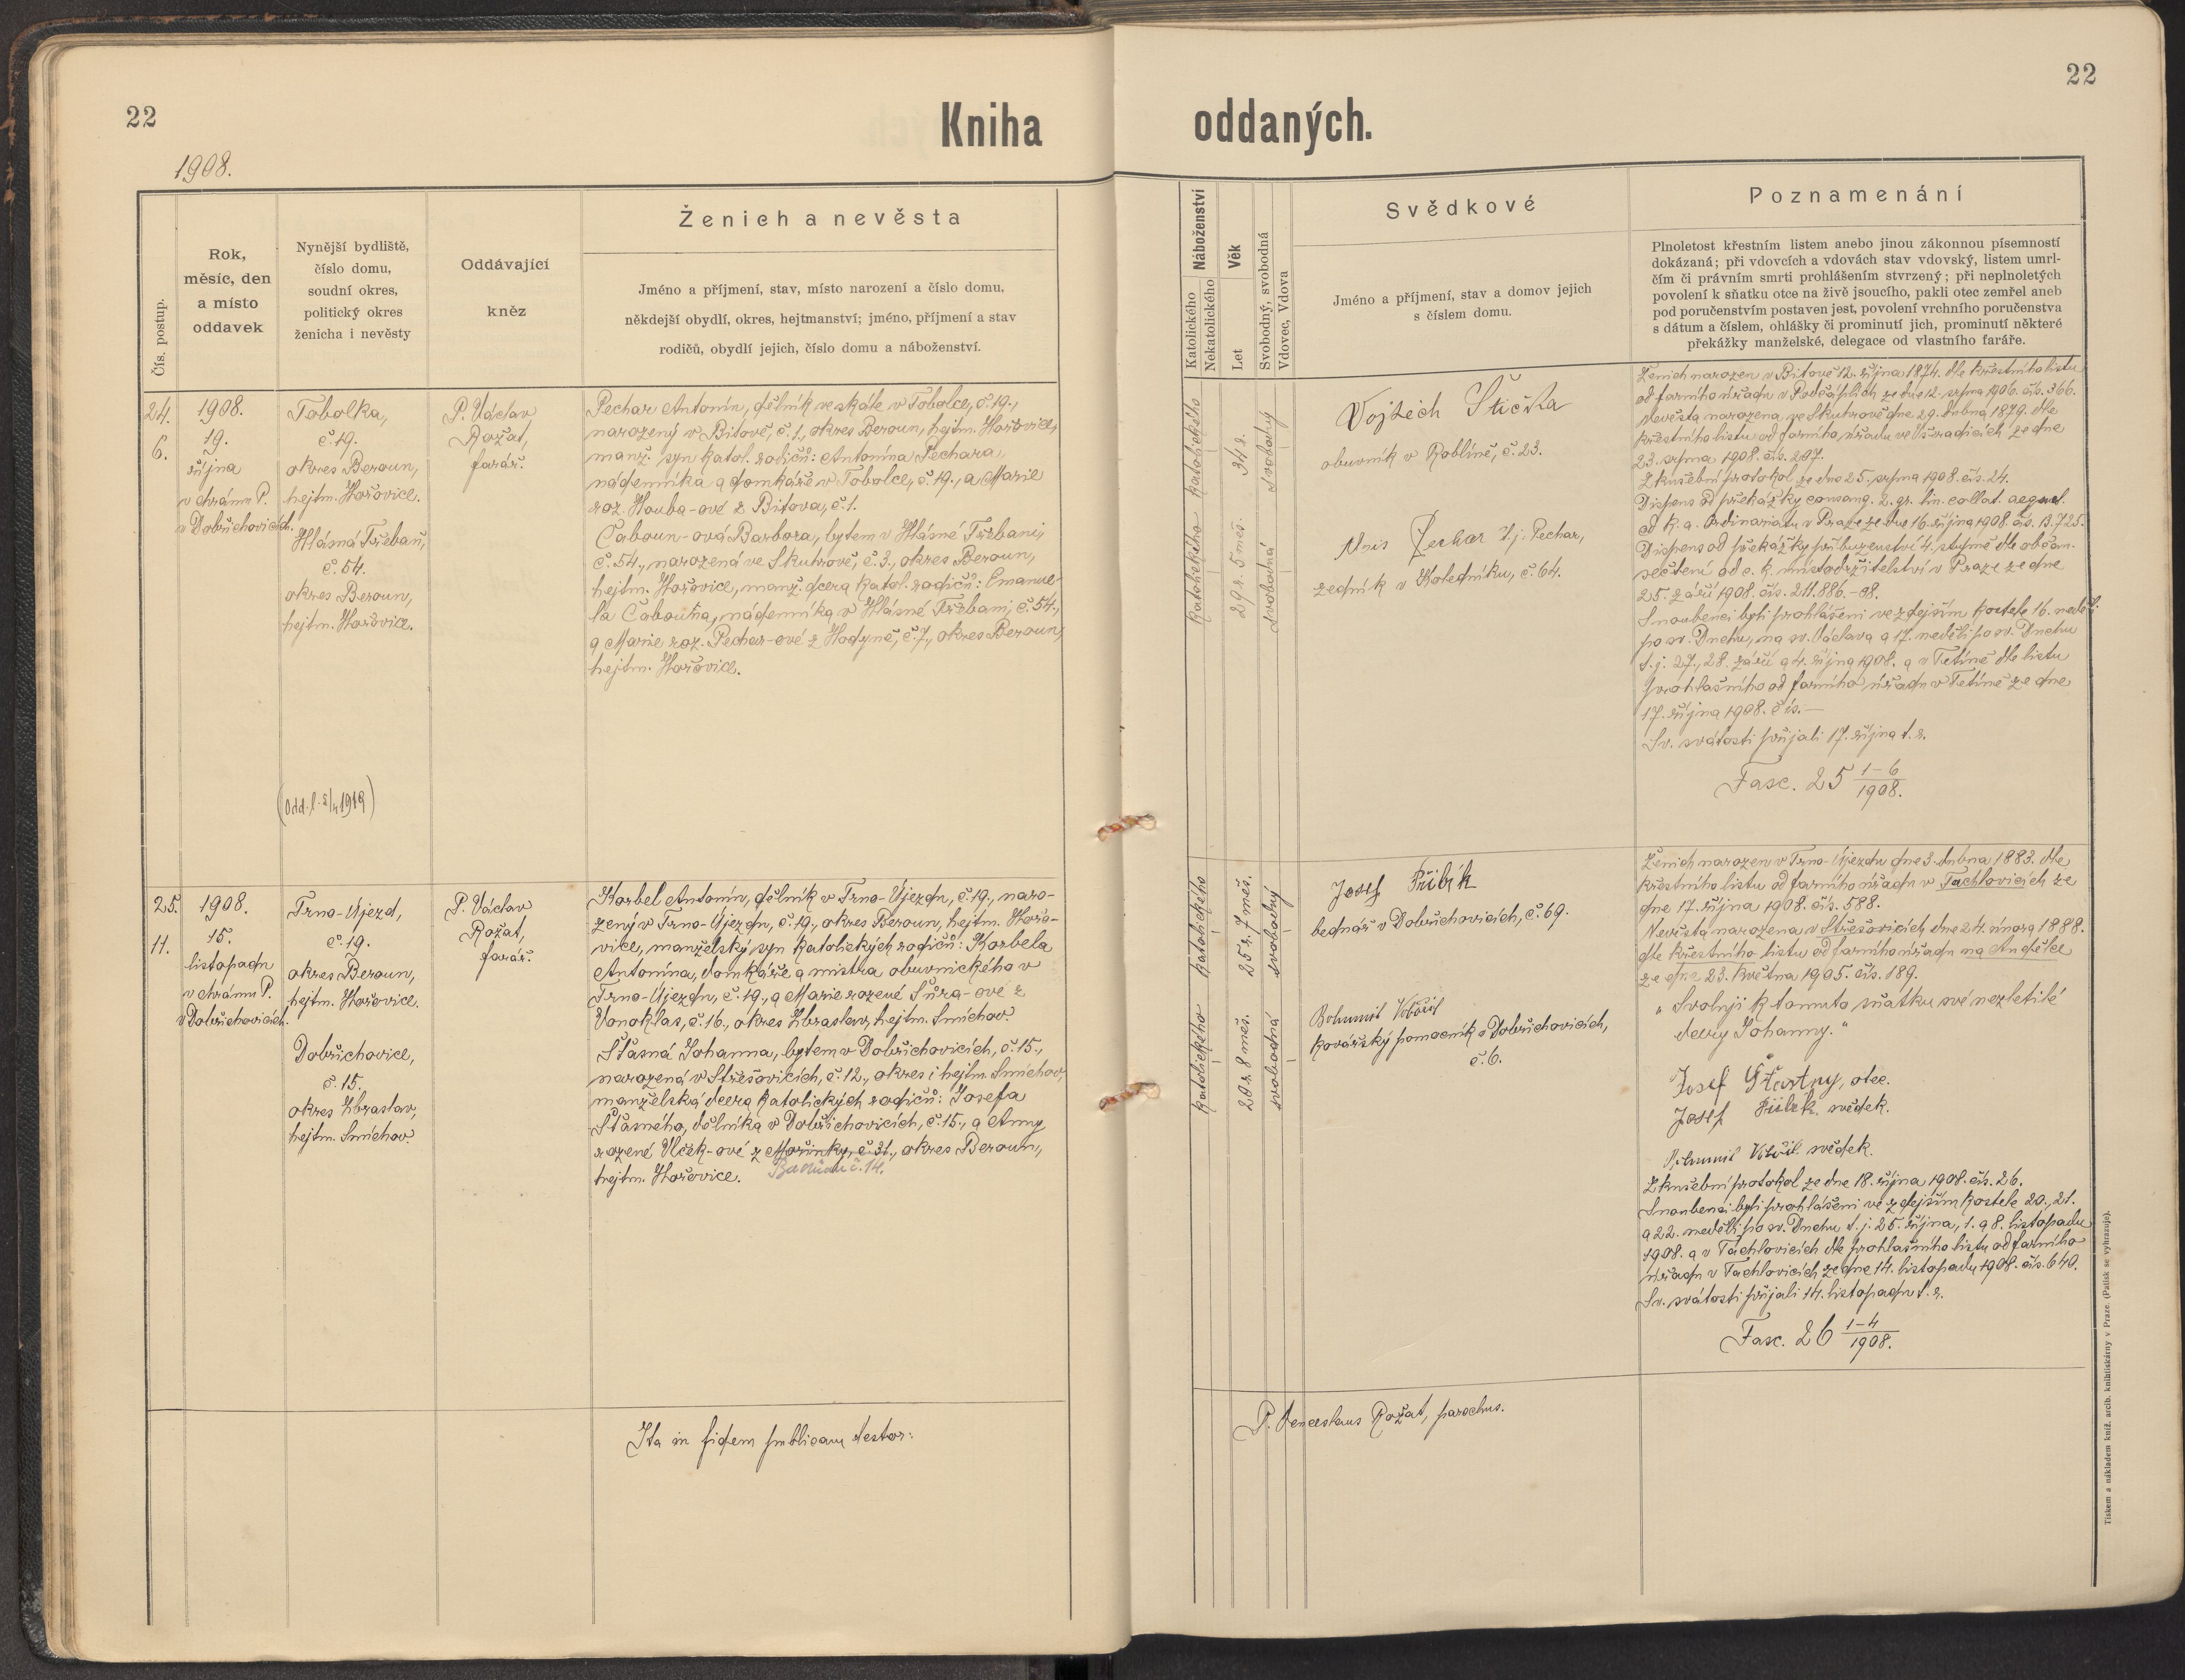 22
Kniha
1908.
Čís. postup.
Rok,
měsíc, den
a místo
oddavek
Nynější bydliště,
číslo domu,
soudní okres,
politický okres
ženicha i nevěsty
Oddávající
kněz
Ženich a nevěsta
Jméno a příjmení, stav, místo narození a číslo domu,
někdejší obydlí, okres, hejtmanství; jméno, příjmení a stav
rodičů, obydlí jejich, číslo domu a náboženství.
24.
6.
1908.
19.
října
v chrámu P.
v Dobřichovicích.
Tobolka,
č. 19.
okres Beroun,
hejtm. Hořovice.
Hlásná Třebaň,
č. 54.
okres Beroun,
hejtm. Hořovice.
P. Václav
Rožat,
farář.
Pechar Antonín, dělník ve skále v Tobolce, č. 19.,
narozený v Bitově, č. 1., okres Beroun, hejtm. Hořovice,
manž. syn katol. rodičů: Antonína Pechara,
nádenníka a domkáře v Tobolce, č. 19., a Marie
roz. Houba-ové z Bitova, č. 1.
Čaboun-ová Barbora, bytem v Hlásné Třebani,
č. 54., narozená ve Skuhrově, č. 3., okres Beroun,
hejtm. Hořovice, manž. dcera katol. rodičů: Emanue-
la Čabouna, nádenníka v Hlásné Třebani, č. 54.,
a Marie roz. Pechar-ové z Hodyně, č. 7., okres Beroun,
hejtm. Hořovice.
25.
11.
1908.
15.
listopadu
v chrámu P.
v Dobřichovicích.
Trno-Újezd,
č. 19.
okres Beroun,
hejtm. Hořovice.
Dobřichovice,
č. 15.
okres Zbraslav,
hejtm. Smíchov.
P. Václav
Rožat,
farář.
Korbel Antonín, dělník v Trno-Újezdu, č. 19., naro-
zený v Trno-Újezdu, č. 19., okres Beroun, hejtm. Hořo-
vice, manželský syn katolických rodičů: Korbela
Antonína, domkáře a mistra obuvnického v
Trno-Újezdu, č. 19., a Marie rozené Šůra-ové z
Vonoklas, č. 16., okres Zbraslav, hejtm. Smíchov.
Šťasná Johanna, bytem v Dobřichovicích, č. 15.,
narozená v Střešovicích, č. 12., okres i hejtm. Smíchov,
manželská dcera katolických rodičů: Josefa
Šťasného, dělníka v Dobřichovicích, č. 15., a Anny
rozené Vlček-ové z Mořinky, č. 31., okres Beroun,
hejtm. Hořovice. č. 14.
Ita in fidem publicam testor:
22
oddaných.
Náboženství
Katolického
Nekatolického
Věk
Let
Svobodný, svobodná
Vdovec, Vdova
Svědkové
Jméno a příjmení, stav a domov jejich
s číslem domu.
Poznamenání
Plnoletost křestním listem anebo jinou zákonnou písemností
dokázaná; při vdovcích a vdovách stav vdovský, listem umrl-
čím či právním smrti prohlášením stvrzený; při neplnoletých
povolení k sňatku otce na živě jsoucího, pakli otec zemřel aneb
pod poručenstvím postaven jest, povolení vrchního poručenstva
s dátum a číslem, ohlášky či prominutí jich, prominutí některé
překážky manželské, delegace od vlastního faráře.
katolického
34 r.
svobodný
katolického
29 r. 5 měs.
svobodná
Vojtěch Stička
obuvník v Roblíně, č. 23.
Pechar t. j. Pechar,
zedník v Koledníku, č. 64.
Ženich narozen v Bitově 12. října 1874. dle křestního listu
od farního úřadu v Počáplích ze dne 12. srpna 1906. čís. 366.
Nevěsta narozena ve Skuhrově dne 29. dubna 1879. dle
křestního listu od farního úřadu ve Všeradicích ze dne
23. srpna 1908. čís. 207.
Zkušební protokol ze dne 25. srpna 1908. čís. 24.
Dispens od překážky consang. 2. gr. lin. collat. aequal.
od k. a. Ordinariátu v Praze ze dne 16. října 1908. čís. 13.725.
Dispens od překážky příbuzenství 4. stupně dle občan.
sečtení od c. k. místodržitelství v Praze ze dne
25. září 1908. čís. 211.886.-08.
Snoubenci byli prohlášeni ve zdejším kostele 16. neděli
po sv. Duchu, na sv. Václava a 17. neděli po sv. Duchu
t. j. 27., 28. září a 4. října 1908. a v Tetíně dle listu
prohlašního od farního úřadu v Tetíně ze dne
17. října 1908. čís. —
Sv. svátosti přijali 17. října t. r.
Fasc. 25 1-6/1908.
katolického
25 r. 7 měs.
svobodný
katolického
20 r. 8 měs.
svobodná
Josef Přibík
bednář v Dobřichovicích, č. 69.
Bohumil
kovářský pomocník v Dobřichovicích,
č. 6.
Ženich narozen v Trno-Újezdu dne 3. dubna 1883. dle
křestního listu od farního úřadu v Tachlovicích ze
dne 17. října 1908. čís. 588.
Nevěsta narozena v Střešovicích dne 24. února 1888.
dle křestního listu od farního úřadu na Andělce
ze dne 23. května 1905. čís. 189.
„Svoluji k tomuto sňatku své nezletilé
dcery Johanny."
Josef Šťastny, otec.
Josef Přibík. svědek.
Bohumil svědek.
Zkušební protokol ze dne 18. října 1908. čís. 26.
Snoubenci byli prohlášeni ve zdejším kostele 20., 21.
a 22. neděli po sv. Duchu t. j. 25. října, 1. a 8. listopadu
1908. a v Tachlovicích dle prohlašního listu od farního
úřadu v Tachlovicích ze dne 14. listopadu 1908. čís. 640.
Sv. svátosti přijali 14. listopadu t. r.
Fasc. 26 1-4/1908.
P. Venceslaus Rožat, parochus.
Tiskem a nákladem kníž. arcib. knihtiskárny v Praze. (Patisk se vyhrazuje).